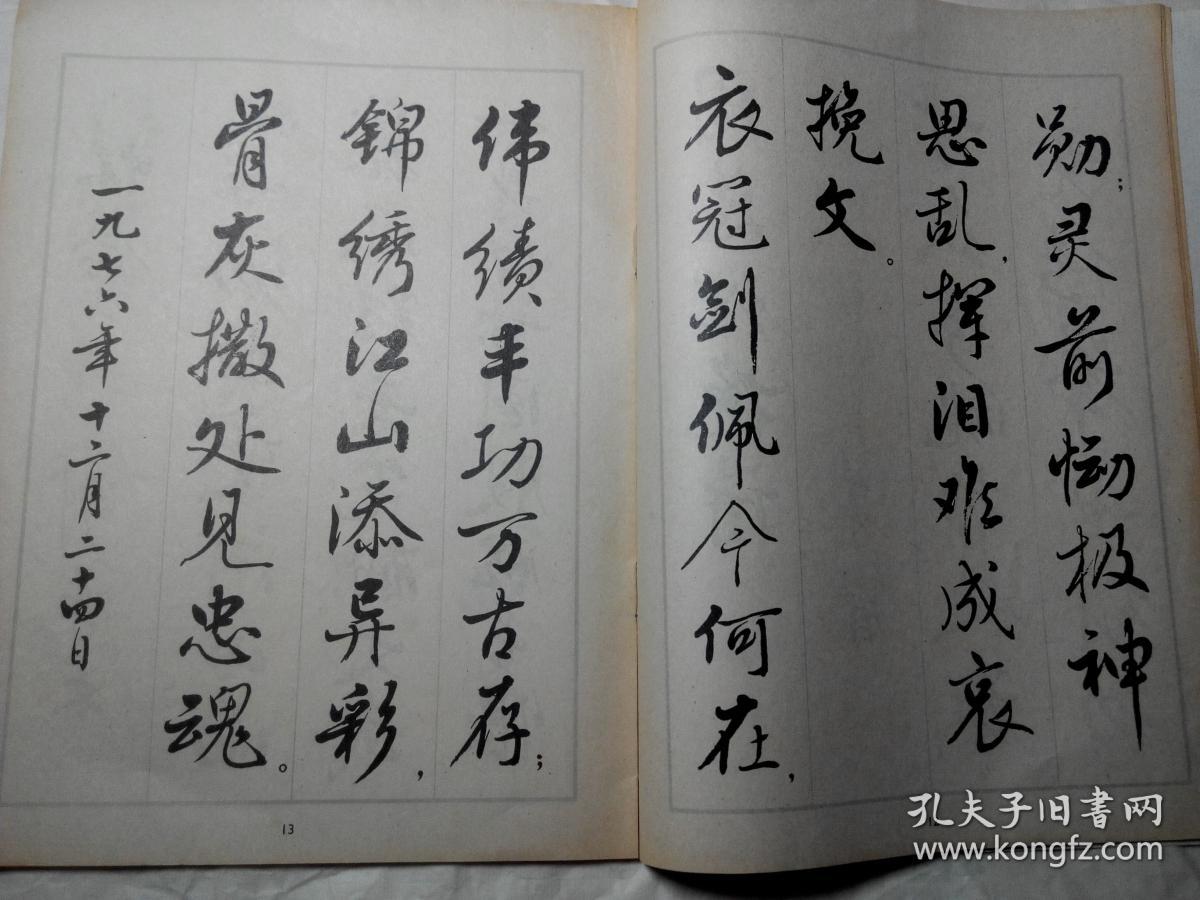 勋；灵前恸极神
思乱，挥泪难成哀
挽文。
衣冠剑佩今何在，
伟绩丰功万古存；
锦绣江山添异彩，
骨灰撒处见忠魂。
一九七六年十二月二十四日
13
孔夫子旧书网
www.kongfz.com